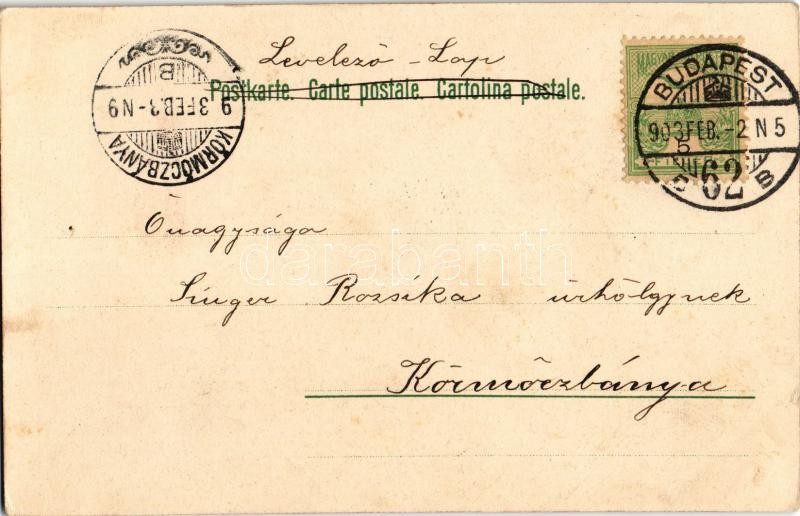 Levelező-Lap
Postkarte. Carte postale. Cartolina postale.
KÖRMÖCZBÁNYA
9 3 FEB. 3 - N 9
B
BUDAPEST
903 FEB. - 2 N 5
62
B
5
Önagysága
Singer Rozsika úrhölgynek
Körmöczbánya
darabanth